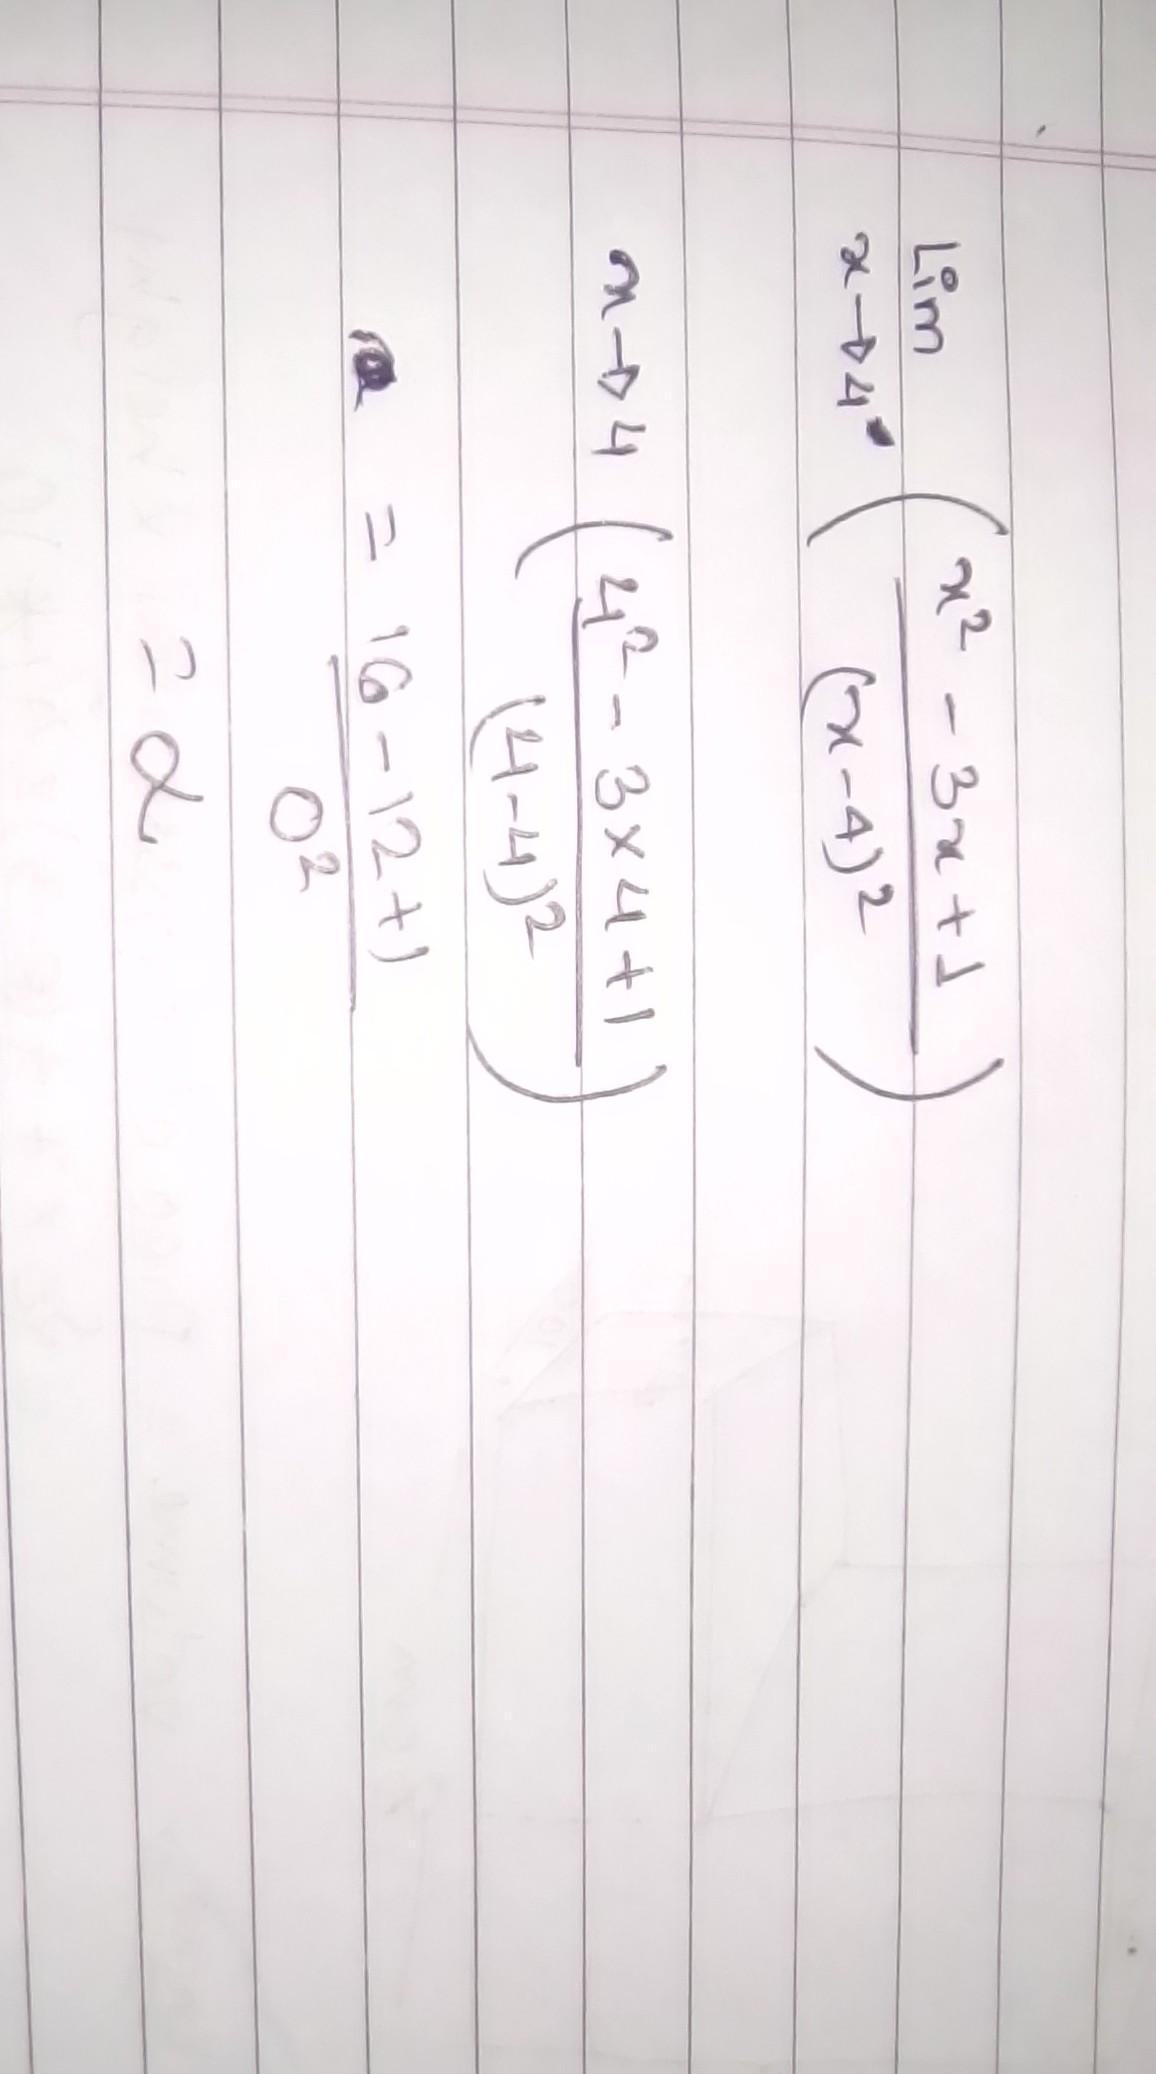 Lim
x→4 ( x² - 3x + 1 / (x-4)² )
x→4 ( 4² - 3×4+1 / (4-4)² )
= 16-12+1 / 0²
= α